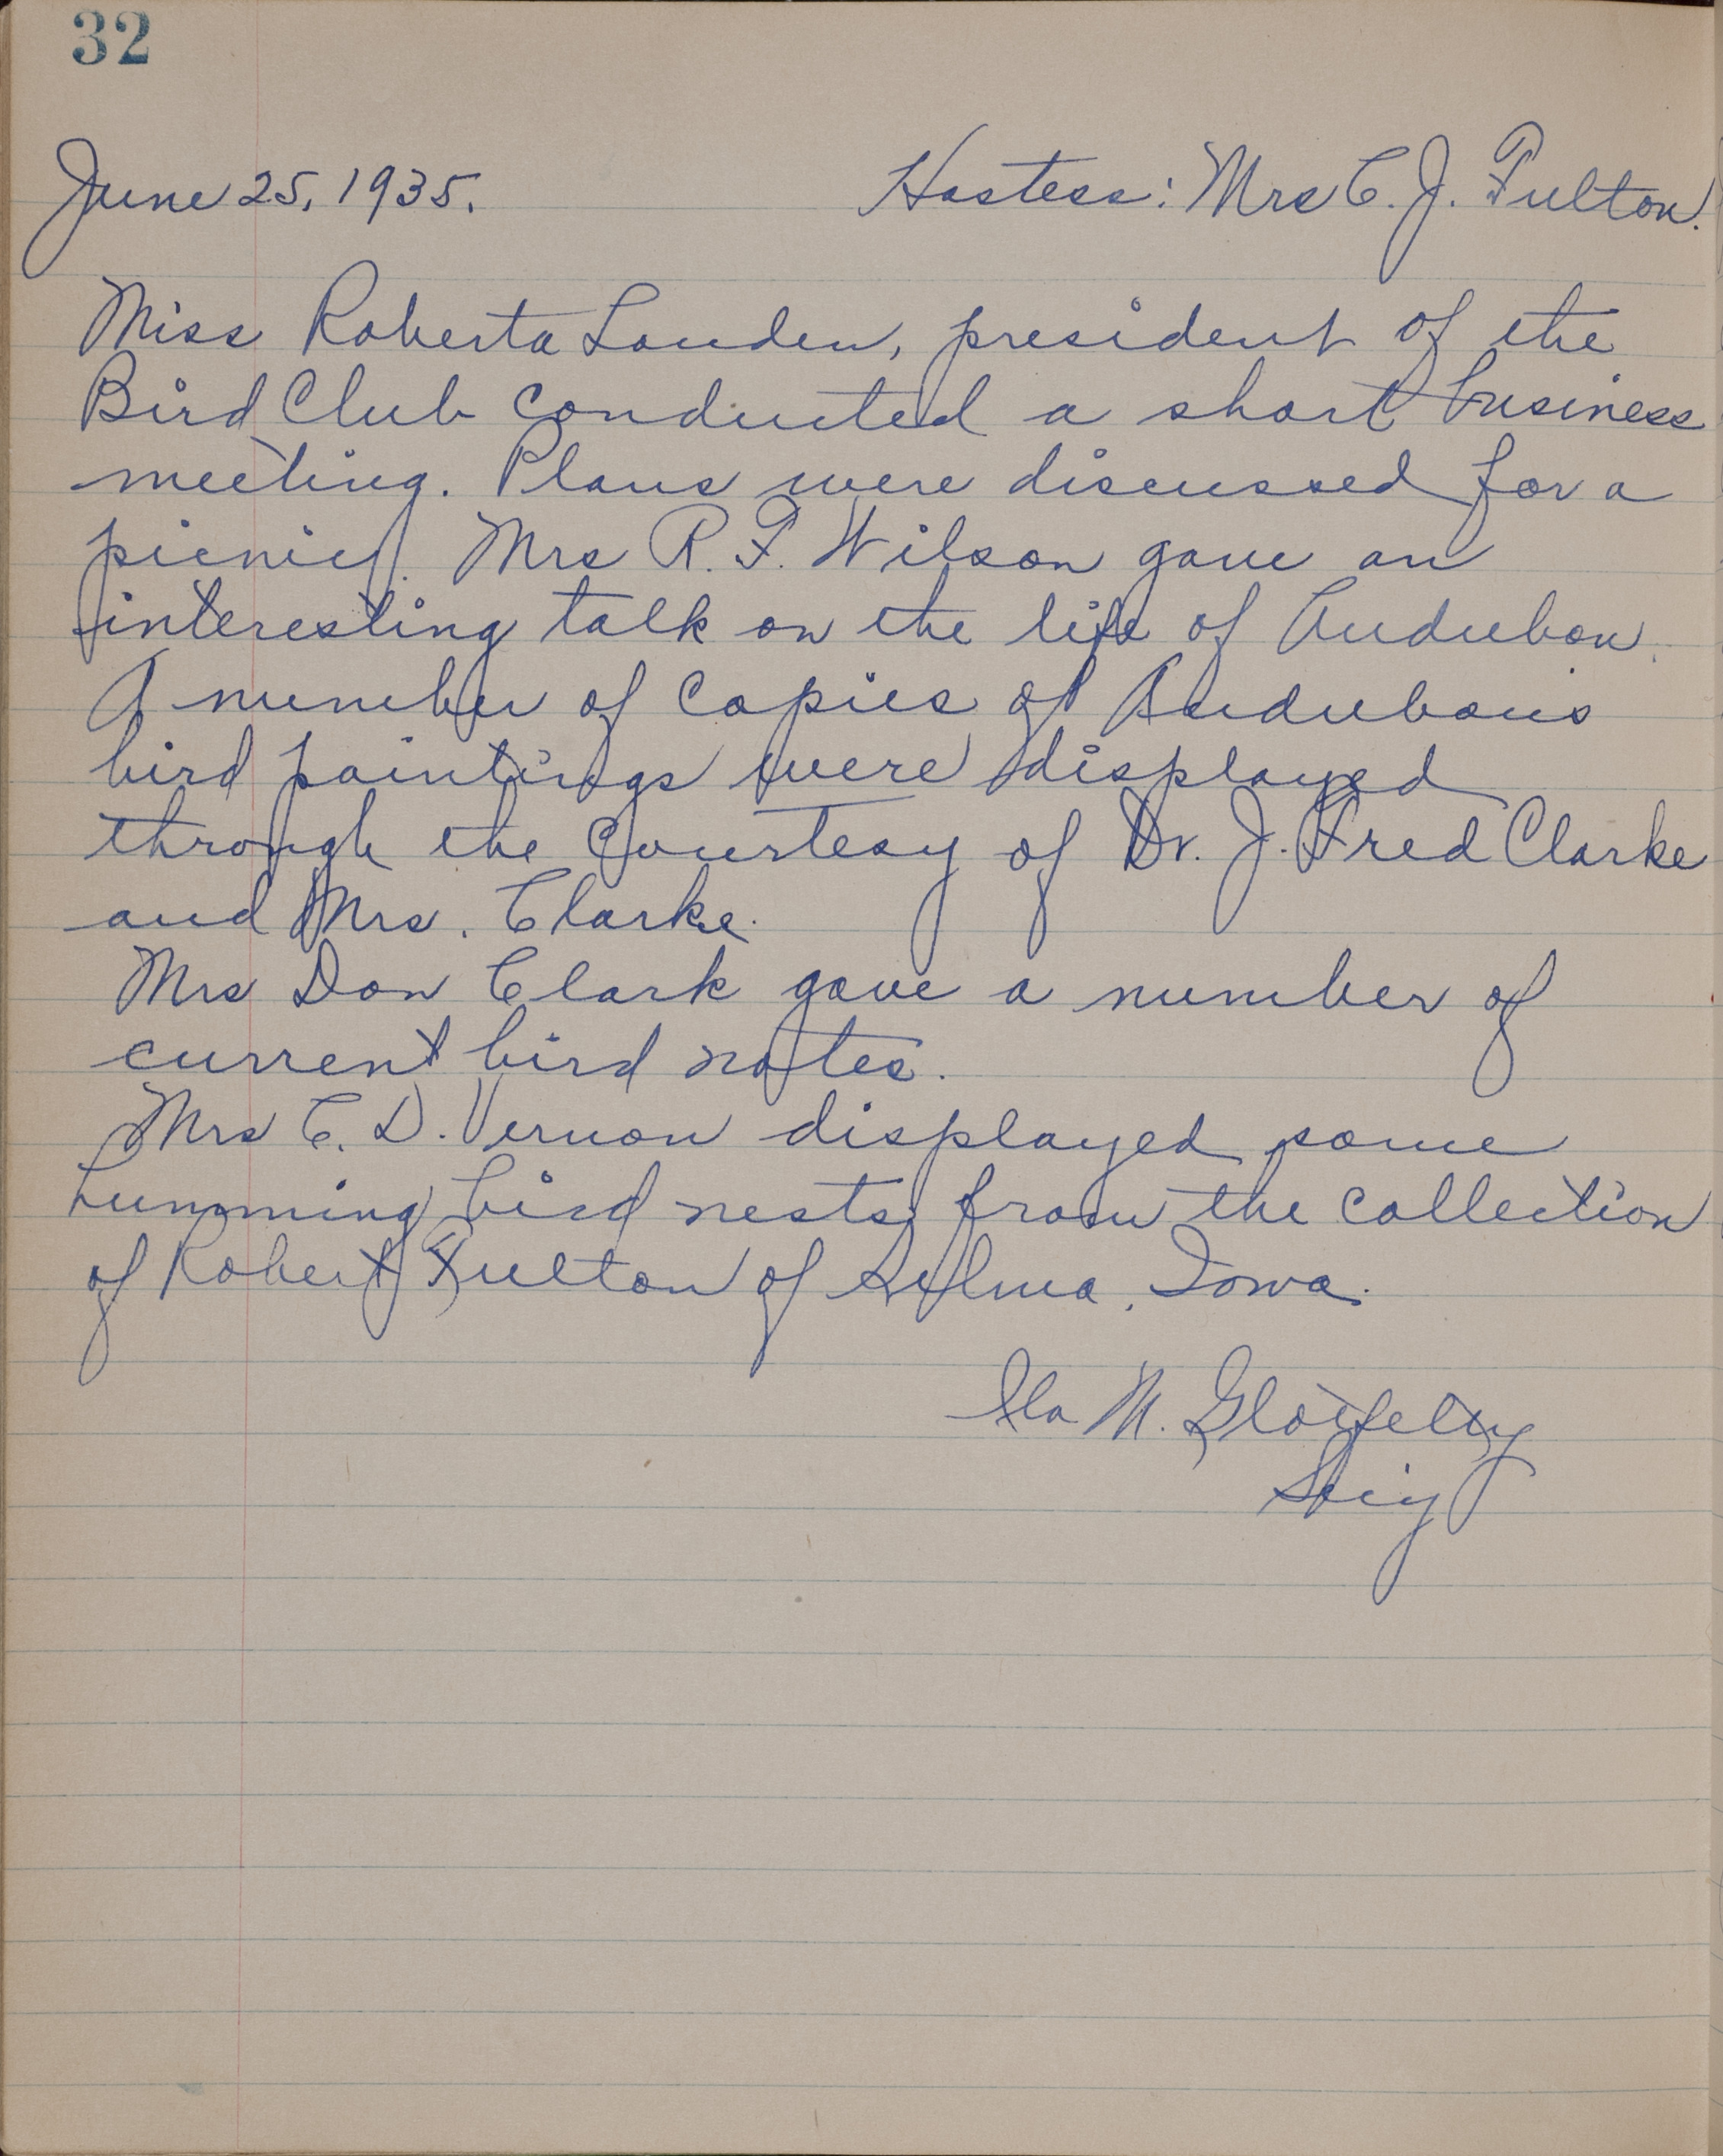 32
June 25, 1935. Hostess: Mrs C. J. Fulton.
Miss Roberta Louden, president of the
Bird Club conducted a short business
meeting. Plans were discussed for a
picnic. Mrs R. F. Wilson gave an
interesting talk on the life of Audubon.
A number of copies of Audubon's
bird paintings were displayed
through the courtesy of Dr. J. Fred Clarke
and Mrs. Clarke.
Mrs Don Clark gave a number of
current bird notes.
Mrs C. D. Vernon displayed some
humming bird nests from the collection
of Robert Fulton of Selma, Iowa.
Ila M. Glotfelty
Sec'y